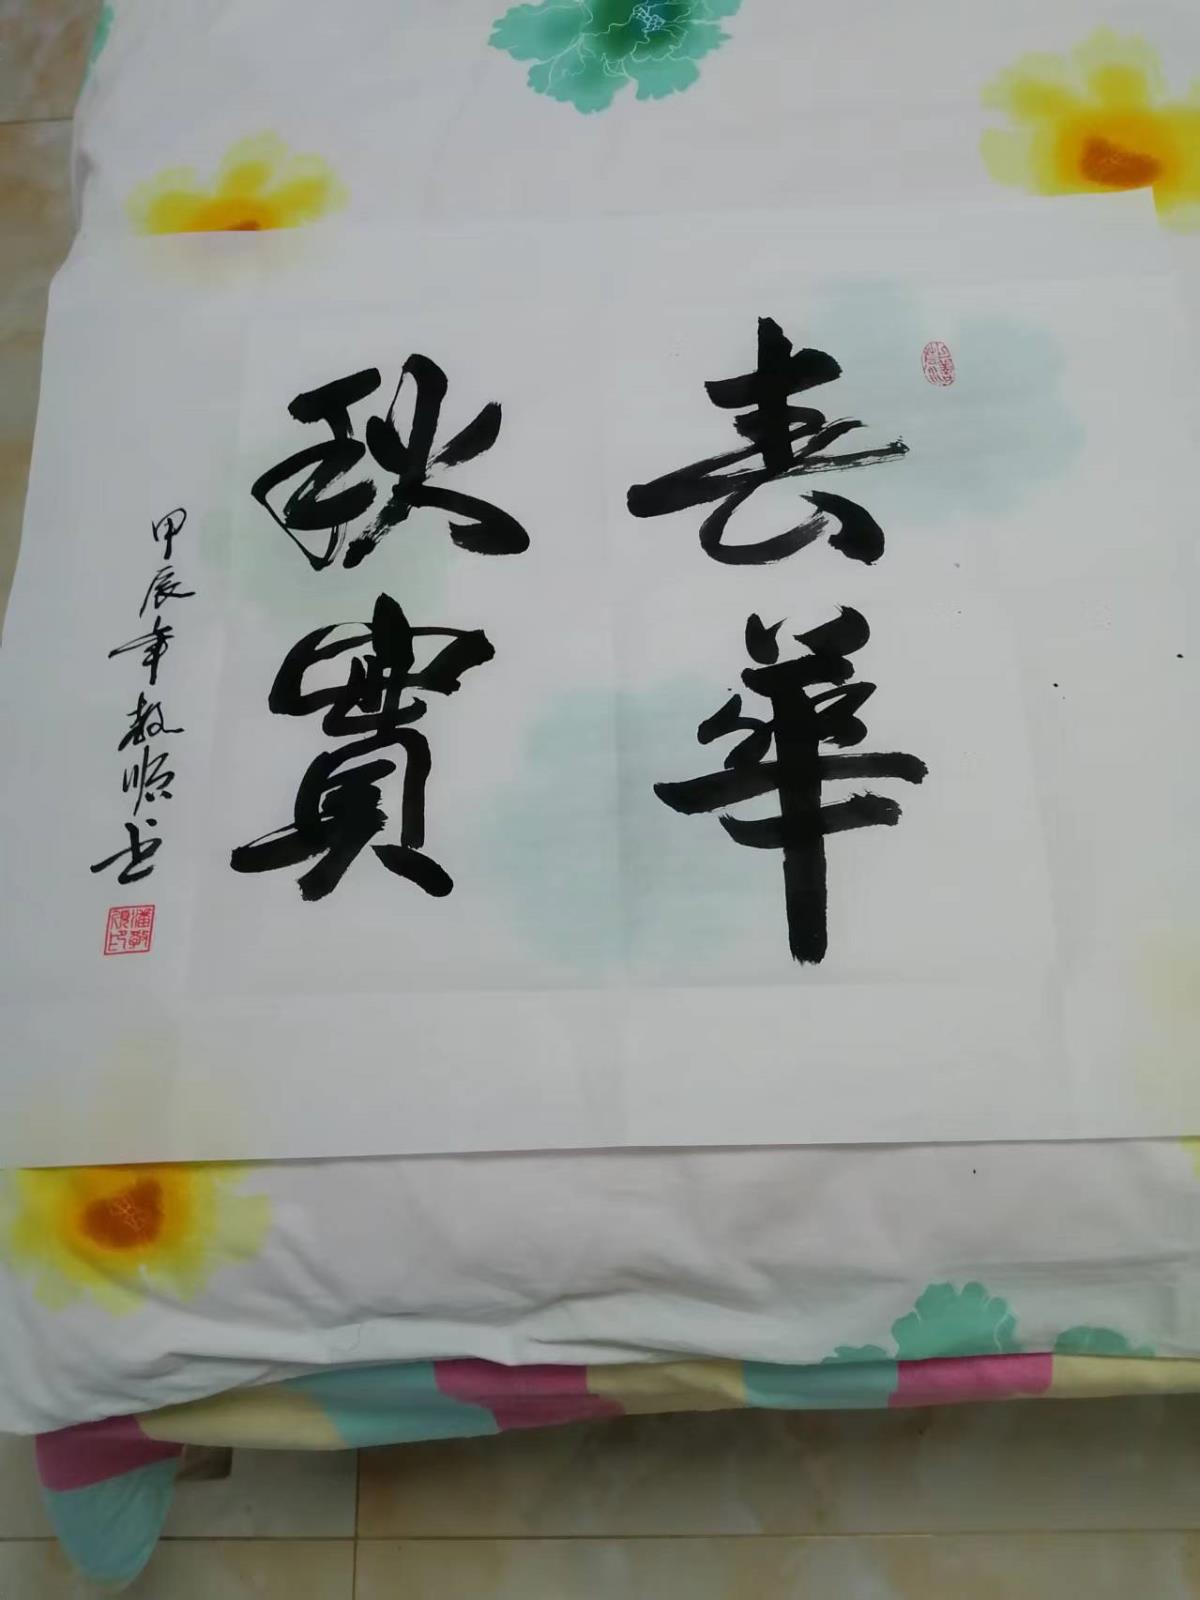 春華
秋實
甲辰年敬順书